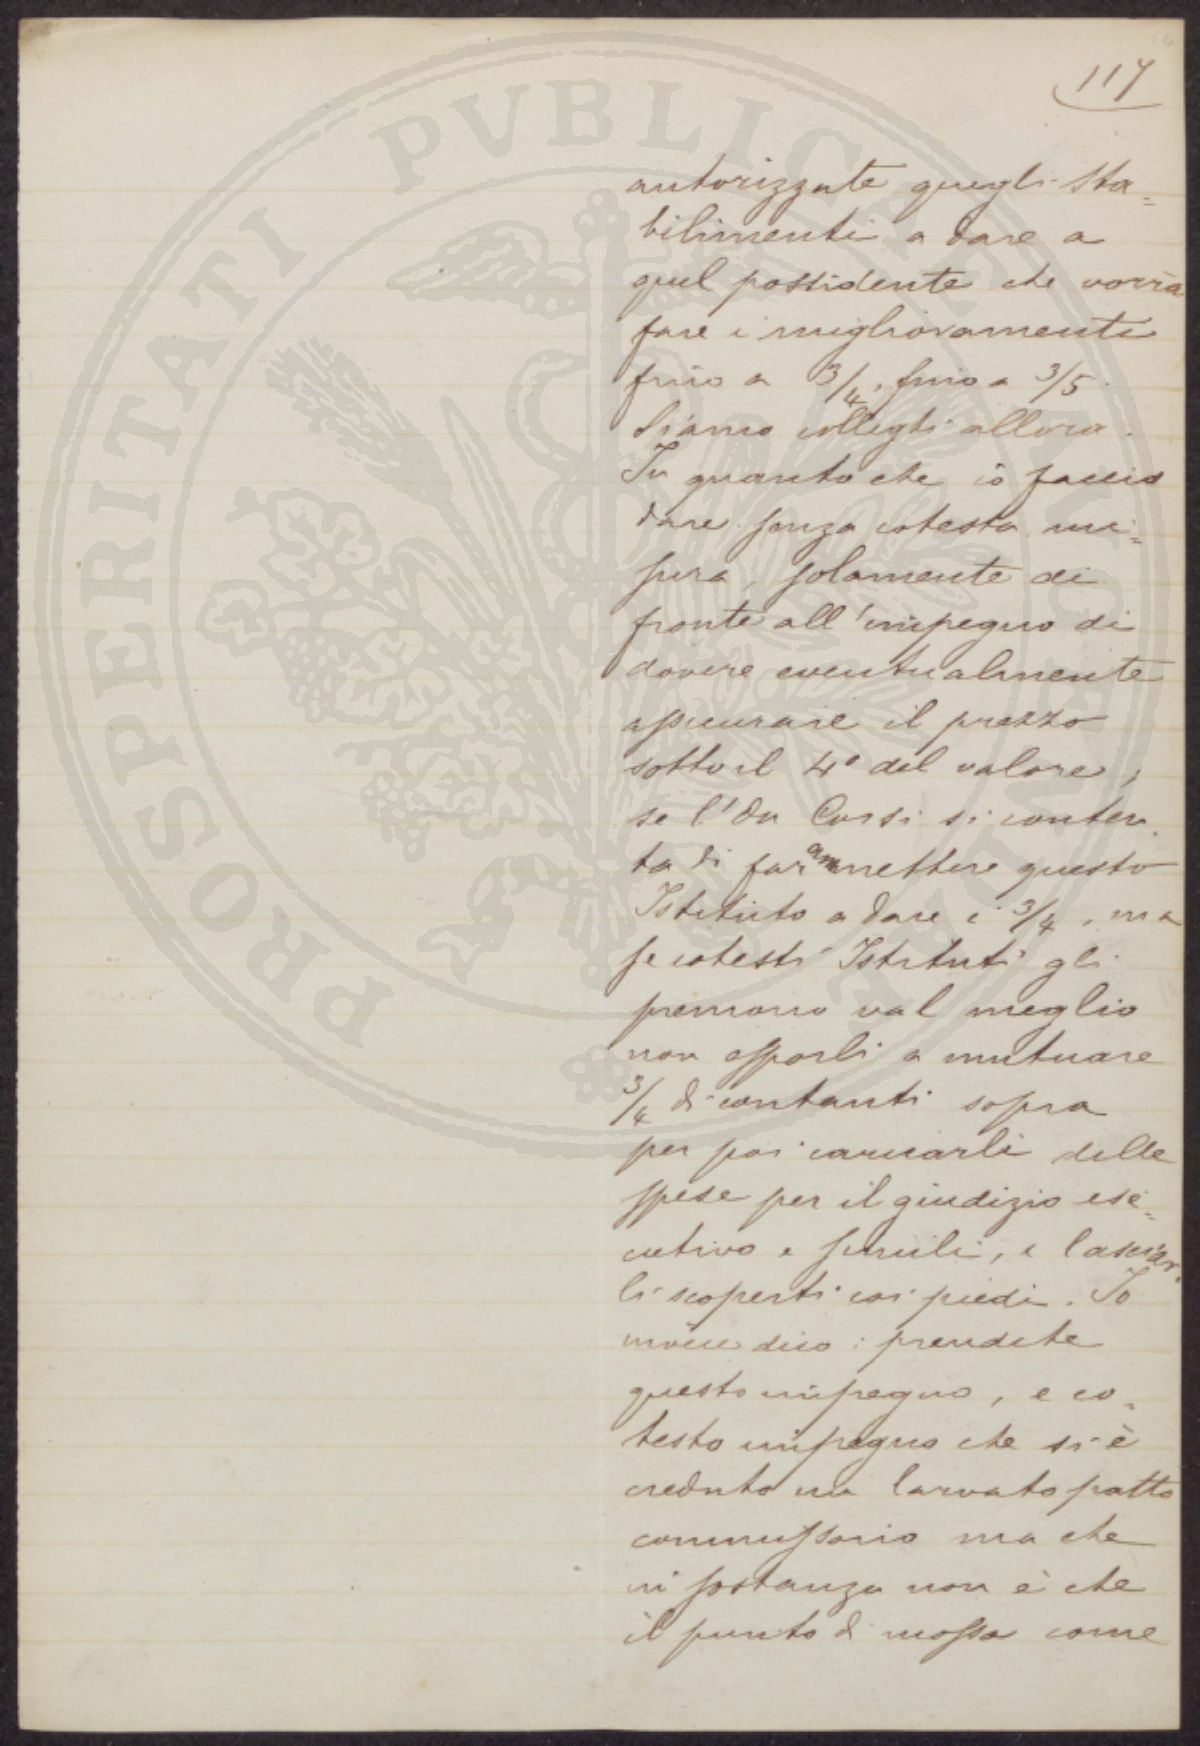 117
autorizzate quegli Sta=
bilimenti a dare a
quel possidente che vorrà
fare i miglioramenti
fino a 3/4, fino a 3/5.
Siamo colleghi allora.
In quanto che io faccio
dare senza cotesta mi=
sura, solamente di
fronte all'impegno di
dovere eventualmente
assicurare il prezzo
sotto il 4° del valore;
se l'On Corsi si conten
ta di far ammettere questo
Istituto a dare i 3/4, ma
se cotesti Istituti gli
premono val meglio
non esporli a mutuare
3/4 di contanti sopra
per poi caricarli delle
spese per il giudizio ese=
cutivo e simili, e lasciar
li scoperti coi piedi. Io
invece dico: prendete
questo impegno, e co=
testo impegno che si è
creduto un larvato patto
commissorio ma che
in sostanza non è che
il punto di mossa come
PROSPERITATI PVBLICAE